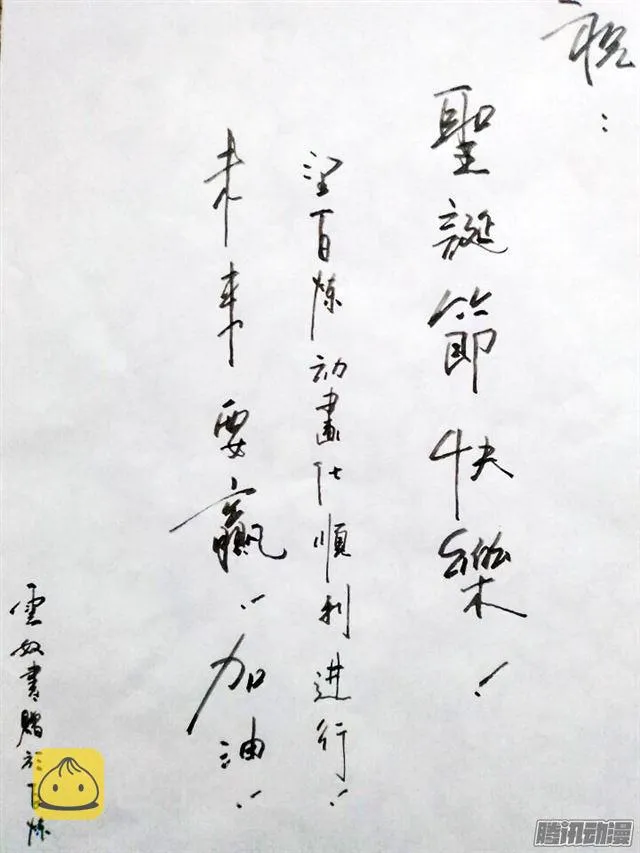 祝：
聖誕節快樂！
望百炼动畫化順利进行！
未来要赢！加油！
雲奴書贈 炼
腾讯动漫